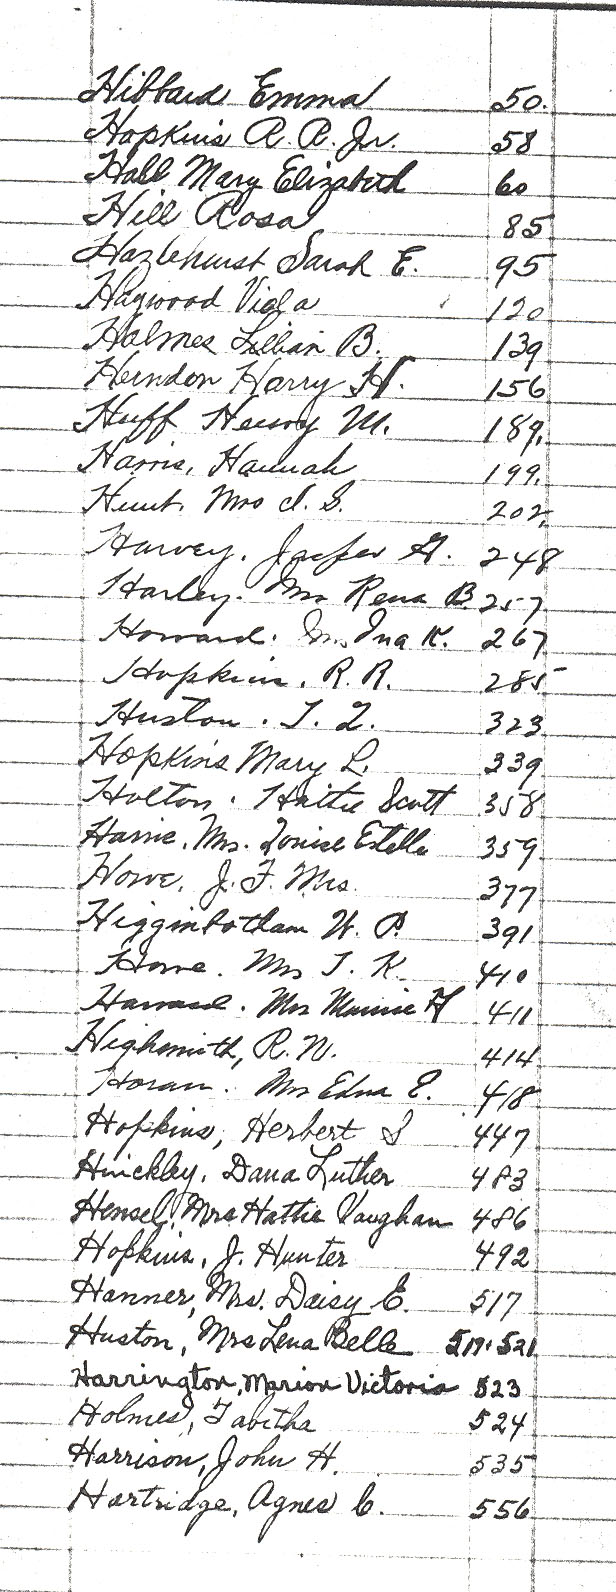 Hibbard Emma 50.
Hopkins R. R. Jr. 58
Hall Mary Elizabeth 60
Hill Rosa 85
Hazlehurst Sarah E. 95
Haywood Viola 120
Holmes Lillian B. 139
Herndon Harry H. 156
Huff Henry M. 189.
Harris, Hannah 199.
Hunt. Mrs 202.
Harvey. Jasper G. 248
Harley. Mrs Rena B. 257
Howard. Mrs Ina K. 267
Hopkins. R. R. 285
Huston. T. L. 323
Hopkins Mary L. 339
Holton. Hattie Scott 358
Harrie. Mrs. Louise Estelle 359
Howe, J. F. Mrs. 377
Higginbotham W. P. 391
Howe. Mrs T. K. 410
Mrs Mamie H 411
Highsmith, R. N. 414
Horan. Mrs Edna E. 418
Hopkins, Herbert S 447
Hinckley, Dana Luther 483
Hensel, Mrs Hattie Vaughan 486
Hopkins, J. Hunter 492
Hanner, Mrs. Daisy E. 517
Huston, Mrs Lena Belle 519. 521
Harrington, Marion Victoria 523
Holmes, Tabitha 524
Harrison, John H. 535
Hartridge, Agnes C. 556